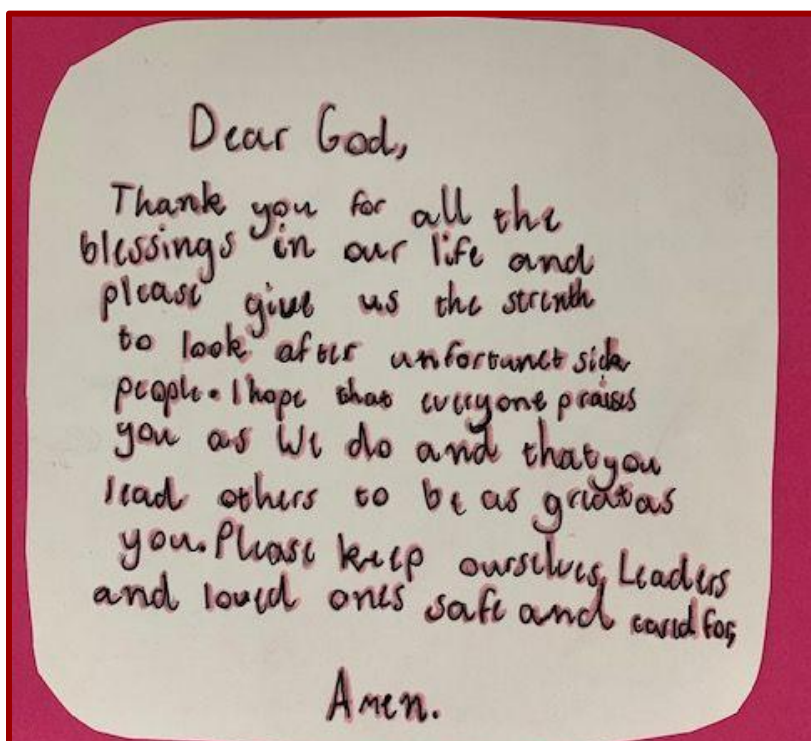 Dear God,
Thank you for all the
blessings in our life and
please give us the strenth
to look after unfortunet sick
people. I hope that everyone praises
you as we do and that you
lead others to be as great as
you. Please keep ourselves, Leaders
and loved ones safe and cared for,
Amen.